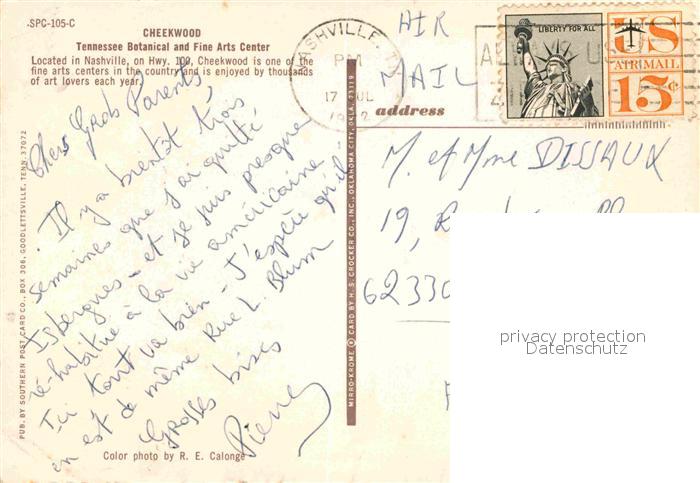 SPC-105-C
CHEEKWOOD
Tennessee Botanical and Fine Arts Center
Located in Nashville, on Hwy. 100, Cheekwood is one of the
fine arts centers in the country and is enjoyed by thousands
of art lovers each year.
Chers Grds Parents,
Il y a bientôt trois
semaines que j'ai quitté
Isbergues - et je suis presque
ré-habitué à la vie américaine.
Ici tout va bien - J'espère qu'il
en est de même Rue L. Blum
Grosses bises
Pierre
Color photo by R. E. Calonge
PUB. BY SOUTHERN POST CARD CO., BOX 306, GOODLETTSVILLE, TENN. 37072
MIRRO-KROME ® CARD BY H. S. CROCKER CO., INC., OKLAHOMA CITY, OKLA. 73119
NASHVILLE, TN
PM
17 JUL
AIR
MAIL
LIBERTY FOR ALL
US
AIRMAIL
15¢
address
M. et Mme DISSAUX
19,
62330
privacy protection
Datenschutz